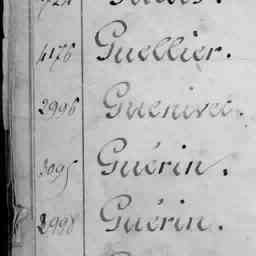 4176 Guellier.
2996 Guenivet.
3095 Guérin.
2998 Guérin.